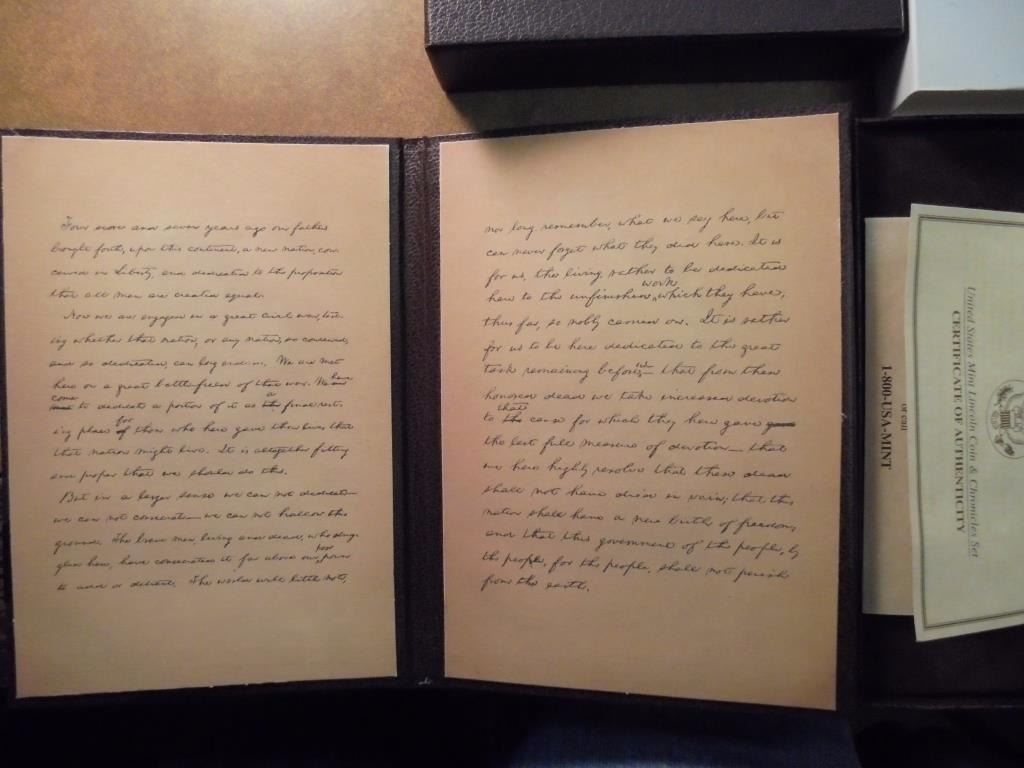 Four score and seven years ago our fathers
brought forth, upon this continent, a new nation, con-
ceived in Liberty, and dedicated to the proposition
that all men are created equal.
Now we are engaged in a great civil war, test-
ing whether that nation, or any nation, so conceived,
and so dedicated, can long endure. We are met
here on a great battle-field of that war. We have
come to dedicate a portion of it as a final rest-
ing place for those who here gave their lives that
that nation might live. It is altogether fitting
and proper that we should do this.
But in a larger sense we can not dedicate—
we can not consecrate—we can not hallow this
ground. The brave men, living and dead, who strug-
gled here, have consecrated it far above our poor power
to add or detract. The world will little note,
nor long remember, what we say here, but
can never forget what they did here. It is
for us, the living, rather to be dedicated
here to the unfinished work which they have,
thus far, so nobly carried on. It is rather
for us to be here dedicated to the great
task remaining before us— that from these
honored dead we take increased devotion
to that cause for which they here gave
the last full measure of devotion— that
we here highly resolve that these dead
shall not have died in vain; that this
nation shall have a new birth of freedom;
and that this government of the people, by
the people, for the people, shall not perish
from the earth.
or call
1-800-USA-MINT
United States Mint Lincoln Coin & Chronicles Set
CERTIFICATE OF AUTHENTICITY